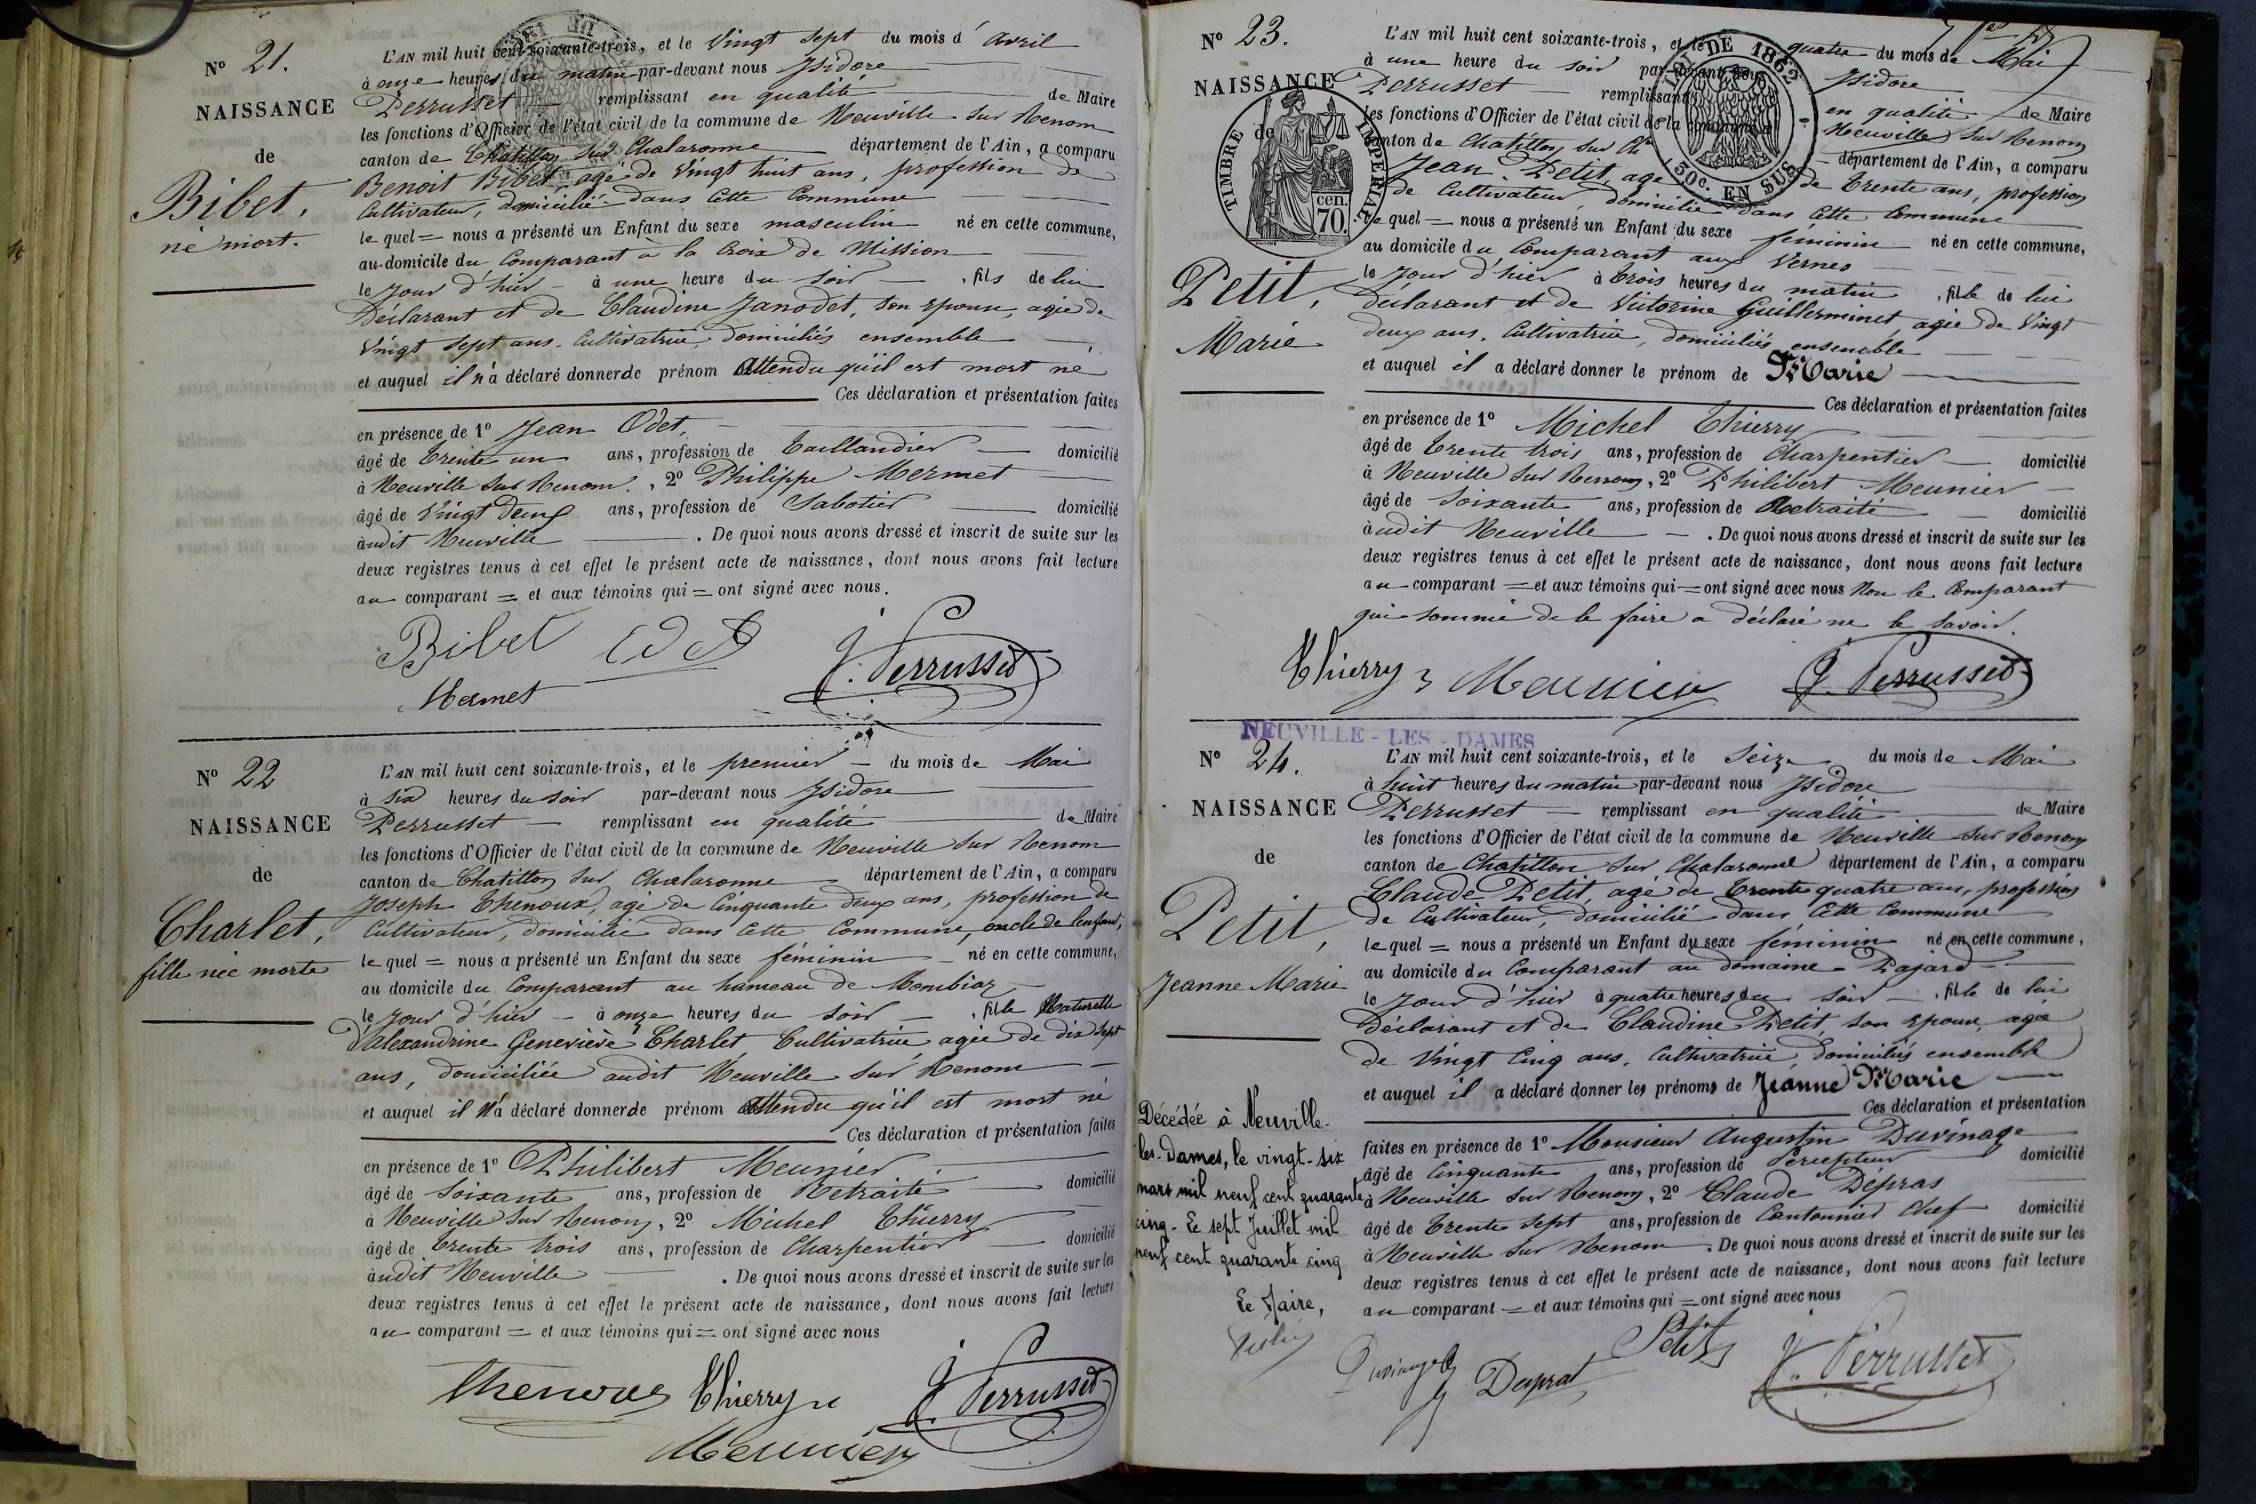 N° 21.
NAISSANCE
de
Bibet,
né mort.
L'AN mil huit cent soixante-trois, et le Vingt sept du mois d'avril
à onze heures du matin par-devant nous Isidore
Perrusset remplissant en qualité de Maire
les fonctions d'Officier de l'état civil de la commune de Neuville sur Renom
canton de Chatillon sur Chalaronne département de l'Ain, a comparu
Benoit Bibet, agé de Vingt huit ans, profession de
Cultivateur, domicilié dans Cette Commune
lequel = nous a présenté un Enfant du sexe masculin né en cette commune,
au domicile du Comparant à la Croix de Mission
le Jour d'hier à une heure du Soir, fils de lui
Déclarant et de Claudine Janodet, son épouse, agée de
Vingt Sept ans, Cultivatrice, domiciliés ensemble
et auquel il n'a déclaré donner de prénom attendu qu'il est mort né
Ces déclaration et présentation faites
en présence de 1° Jean Odet,
âgé de trente un ans, profession de Taillandier domicilié
à Neuville sur Renom, 2° Philippe Mermet
âgé de Vingt Deux ans, profession de Sabotier domicilié
audit Neuville. De quoi nous avons dressé et inscrit de suite sur les
deux registres tenus à cet effet le présent acte de naissance, dont nous avons fait lecture
au comparant = et aux témoins qui = ont signé avec nous.
Bibet Odet J. Perrusset
Mermet
N° 22
NAISSANCE
de
Charlet,
fille née morte
L'AN mil huit cent soixante-trois, et le premier du mois de Mai
à Six heures du soir par-devant nous Isidore
Perrusset remplissant en qualité de Maire
les fonctions d'Officier de l'état civil de la commune de Neuville sur Renom
canton de Chatillon sur Chalaronne département de l'Ain, a comparu
Joseph Chenoux, agé de Cinquante deux ans, profession de
Cultivateur, domicilié dans Cette Commune, oncle de l'enfant,
lequel = nous a présenté un Enfant du sexe féminin né en cette commune,
au domicile du Comparant au hameau de
le Jour d'hier à onze heures du soir, fille Naturelle
d'alexandrine Geneviève Charlet, Cultivatrice agée de dix Sept
ans, domiciliée audit Neuville sur Renom
et auquel il n'a déclaré donner de prénom attendu qu'il est mort né
Ces déclaration et présentation faites
en présence de 1° Philibert Meunier,
âgé de Soixante ans, profession de Retraité domicilié
à Neuville sur Renom, 2° Michel Thierry
âgé de trente trois ans, profession de Charpentier domicilié
audit Neuville. De quoi nous avons dressé et inscrit de suite sur les
deux registres tenus à cet effet le présent acte de naissance, dont nous avons fait lecture
au comparant = et aux témoins qui = ont signé avec nous
Chenoux Thierry J. Perrusset
Meunier
N° 23.
NAISSANCE
de
TIMBRE IMPERIAL
70. cen.
LOI DE 1862
50c. EN SUS
Petit,
Marie
L'AN mil huit cent soixante-trois, et le quatre du mois de Mai
à une heure du soir par-devant nous Isidore
Perrusset remplissant en qualité de Maire
les fonctions d'Officier de l'état civil de la commune de Neuville sur Renom
canton de Chatillon sur département de l'Ain, a comparu
Jean Petit, agé de trente ans, profession
de Cultivateur, domicilié dans Cette Commune
lequel = nous a présenté un Enfant du sexe féminin né en cette commune,
au domicile du Comparant aux Vernes
le Jour d'hier à trois heures du matin, fille de lui
Déclarant et de Victorine Guillerminet, agée de Vingt
deux ans, Cultivatrice, domiciliés ensemble
et auquel il a déclaré donner le prénom de Marie
Ces déclaration et présentation faites
en présence de 1° Michel Thierry
âgé de trente trois ans, profession de Charpentier domicilié
à Neuville sur Renom, 2° Philibert Meunier
âgé de Soixante ans, profession de Retraité domicilié
audit Neuville. De quoi nous avons dressé et inscrit de suite sur les
deux registres tenus à cet effet le présent acte de naissance, dont nous avons fait lecture
au comparant = et aux témoins qui = ont signé avec nous Non le Comparant
qui sommé de le faire a déclaré ne le savoir.
Thierry Meunier J. Perrusset
NEUVILLE-LES-DAMES
N° 24.
NAISSANCE
de
Petit,
Jeanne Marie
Décédée à Neuville-
les-Dames, le vingt-six
mars mil neuf cent quarante
cinq. Le sept Juillet mil
neuf cent quarante cinq
Le Maire,
L'AN mil huit cent soixante-trois, et le Seize du mois de Mai
à huit heures du matin par-devant nous Isidore
Perrusset remplissant en qualité de Maire
les fonctions d'Officier de l'état civil de la commune de Neuville sur Renom
canton de Chatillon sur Chalaronne département de l'Ain, a comparu
Claude Petit, agé de trente quatre ans, profession
de Cultivateur, domicilié dans Cette Commune
lequel = nous a présenté un Enfant du sexe féminin né en cette commune,
au domicile du Comparant au domaine Pajard
le Jour d'hier à quatre heures du soir, fille de lui
déclarant et de Claudine Petit, son épouse, agée
de Vingt Cinq ans, Cultivatrice, domiciliés ensemble
et auquel il a déclaré donner les prénoms de Jeanne Marie
Ces déclaration et présentation
faites en présence de 1° Monsieur Augustin Duvinage
âgé de Cinquante ans, profession de Percepteur domicilié
à Neuville sur Renom, 2° Claude Dépras
âgé de trente Sept ans, profession de Cantonnier Chef domicilié
à Neuville sur Renom. De quoi nous avons dressé et inscrit de suite sur les
deux registres tenus à cet effet le présent acte de naissance, dont nous avons fait lecture
au comparant = et aux témoins qui = ont signé avec nous
Duvinage Deprat Petit J. Perrusset